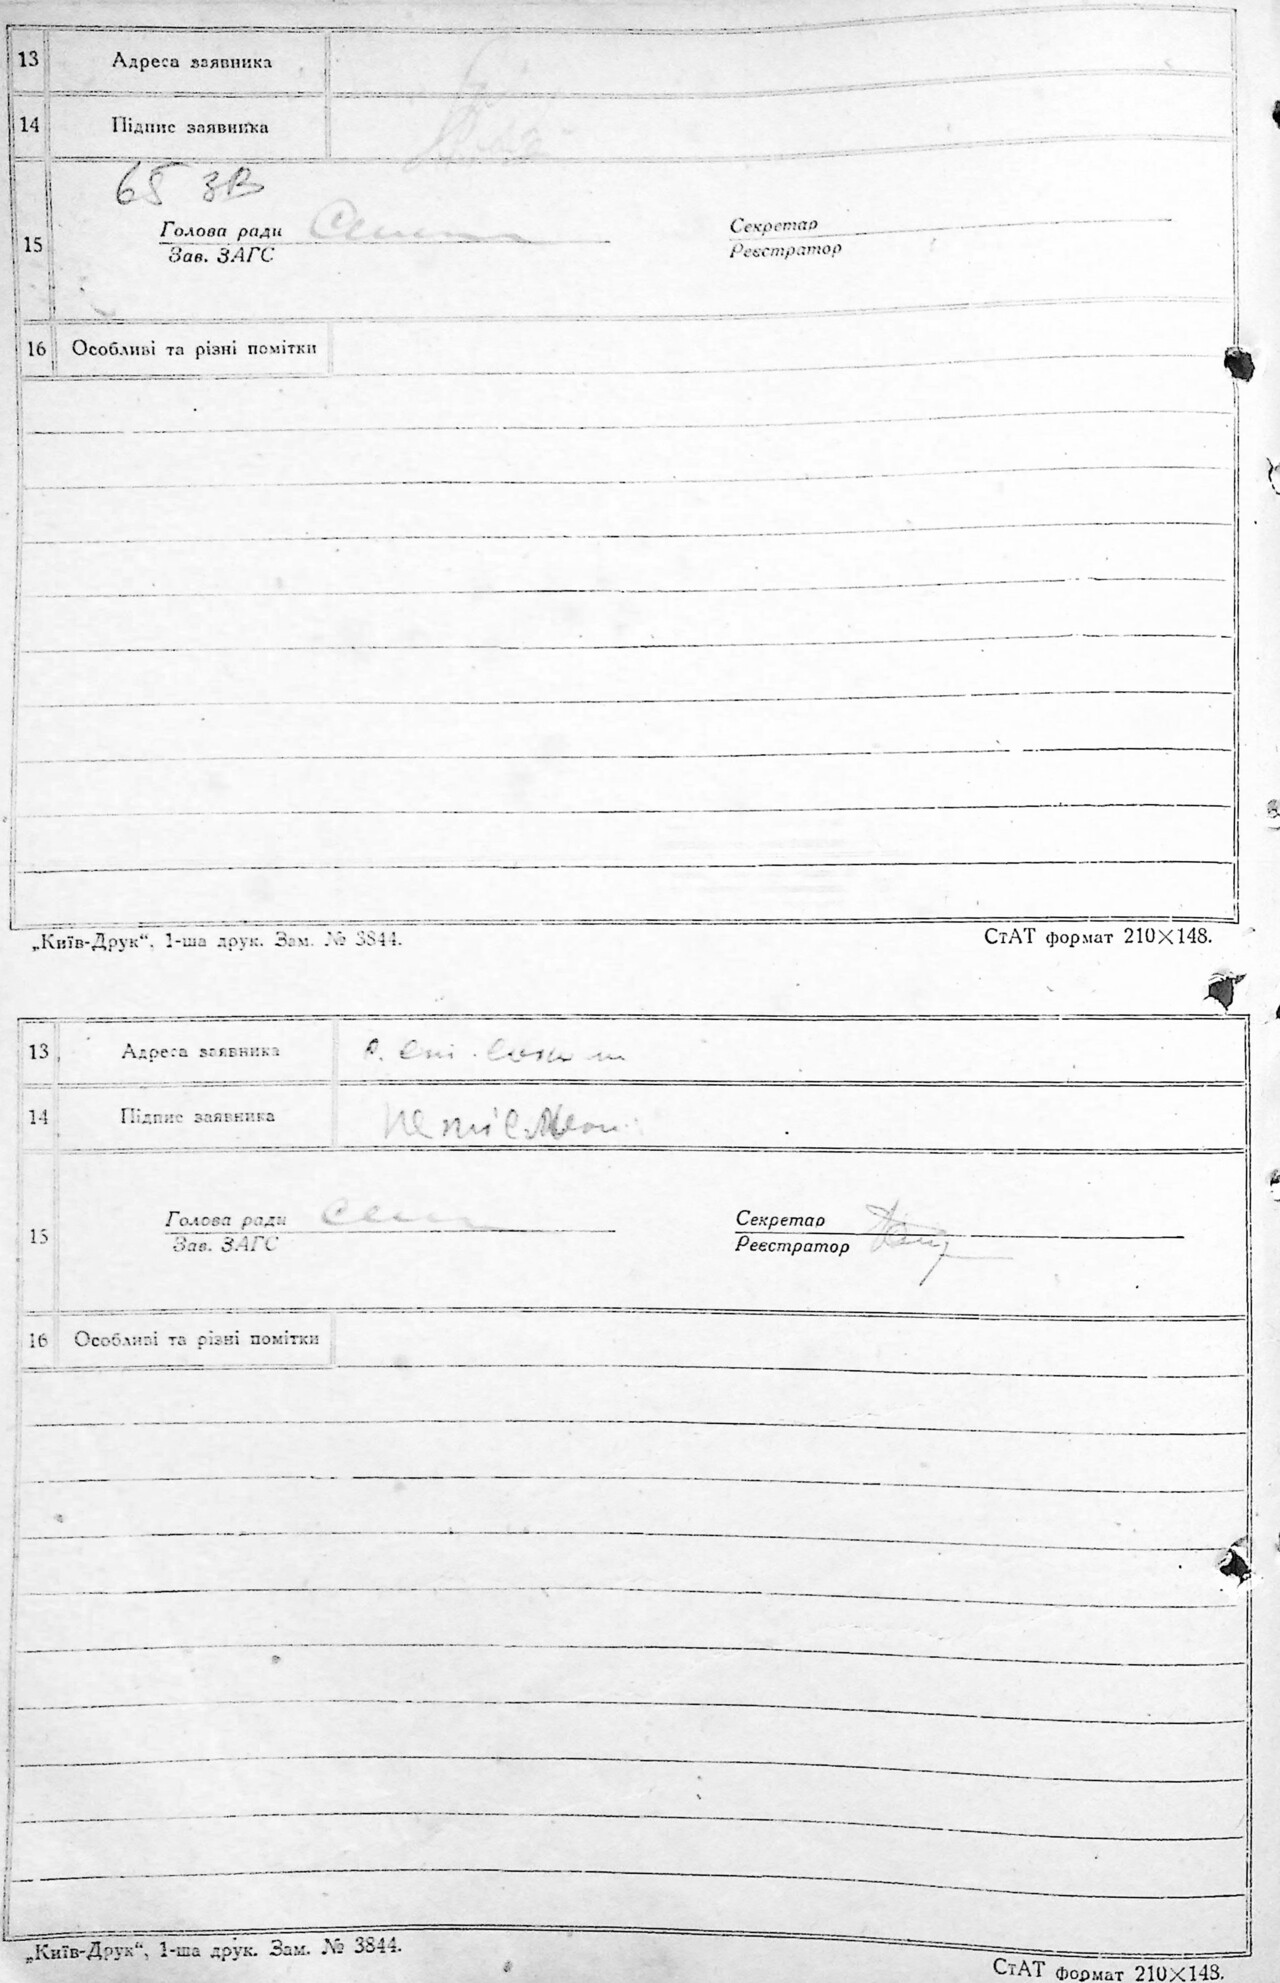 13 Адреса заявника
14 Підпис заявника
65 зв
15 Голова ради Секретар
Зав. ЗАГС Реєстратор
16 Особливі та різні помітки
„Київ-Друк“, 1-ша друк. Зам. № 3844. СтАТ формат 210×148.
13 Адреса заявника
14 Підпис заявника
15 Голова ради Секретар
Зав. ЗАГС Реєстратор
16 Особливі та різні помітки
„Київ-Друк“, 1-ша друк. Зам. № 3844.
СтАТ формат 210×148.